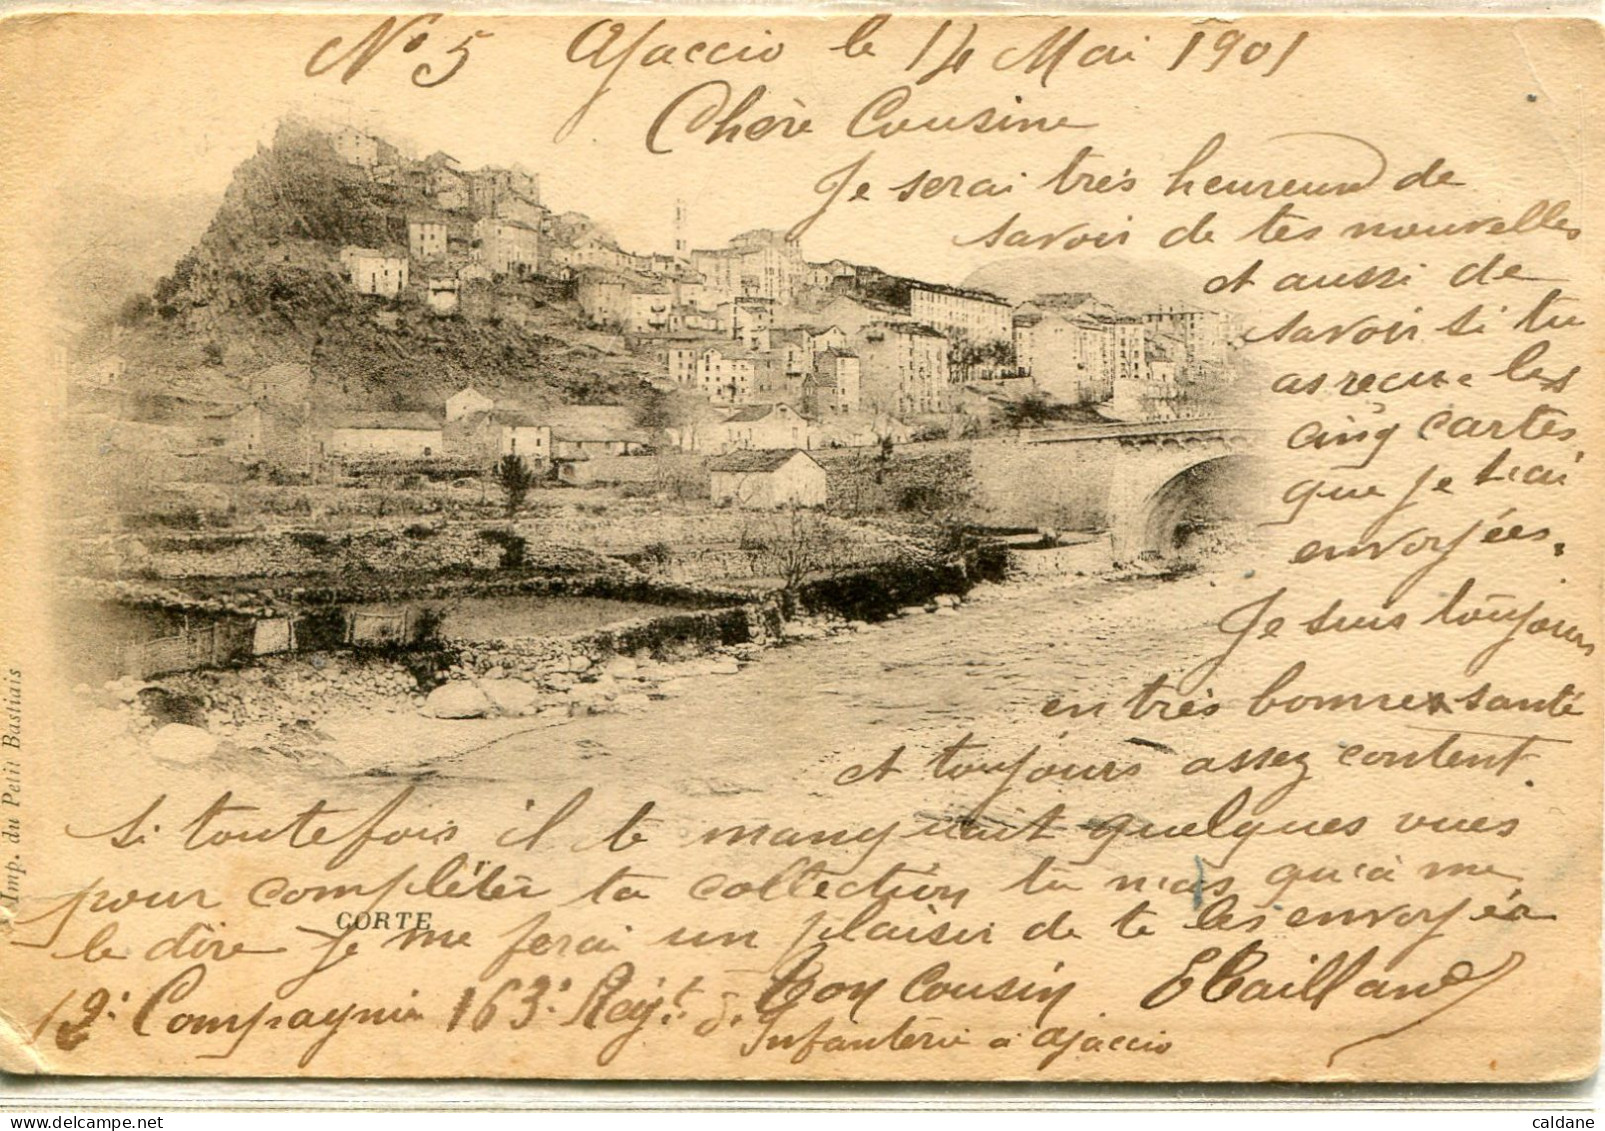 No 5 Ajaccio le 14 Mai 1901
Chère Cousine
Je serai très heureux de
savoir de tes nouvelles
et aussi de
savoir si tu
as reçue les
cinq cartes
que je t'ai
envoyées.
Je suis toujours
en très bonne santé
et toujours assez content.
Si toutefois il te manquait quelques vues
pour complèter ta collection tu n'as qu'à me
le dire je me ferai un plaisir de te les envoyér
Ton Cousin E Tailland
12e Compagnie 163e Régt. d'
Infantérie à Ajaccio
CORTE
Imp. du Petit Bastiais
caldane